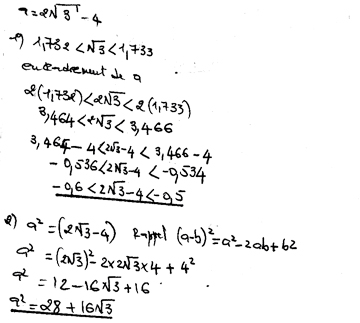 a = 2√3 - 4
1) 1,732 < √3 < 1,733
encadrement de a
2(1,732) < 2√3 < 2(1,733)
3,464 < 2√3 < 3,466
3,464 - 4 < 2√3 - 4 < 3,466 - 4
- 0,536 < 2√3 - 4 < - 0,534
- 0,6 < 2√3 - 4 < - 0,5
2) a² = (2√3 - 4) Rappel (a-b)² = a² - 2ab + b2
a² = (2√3)² - 2×2√3×4 + 4²
a² = 12 - 16√3 + 16
a² = 28 + 16√3